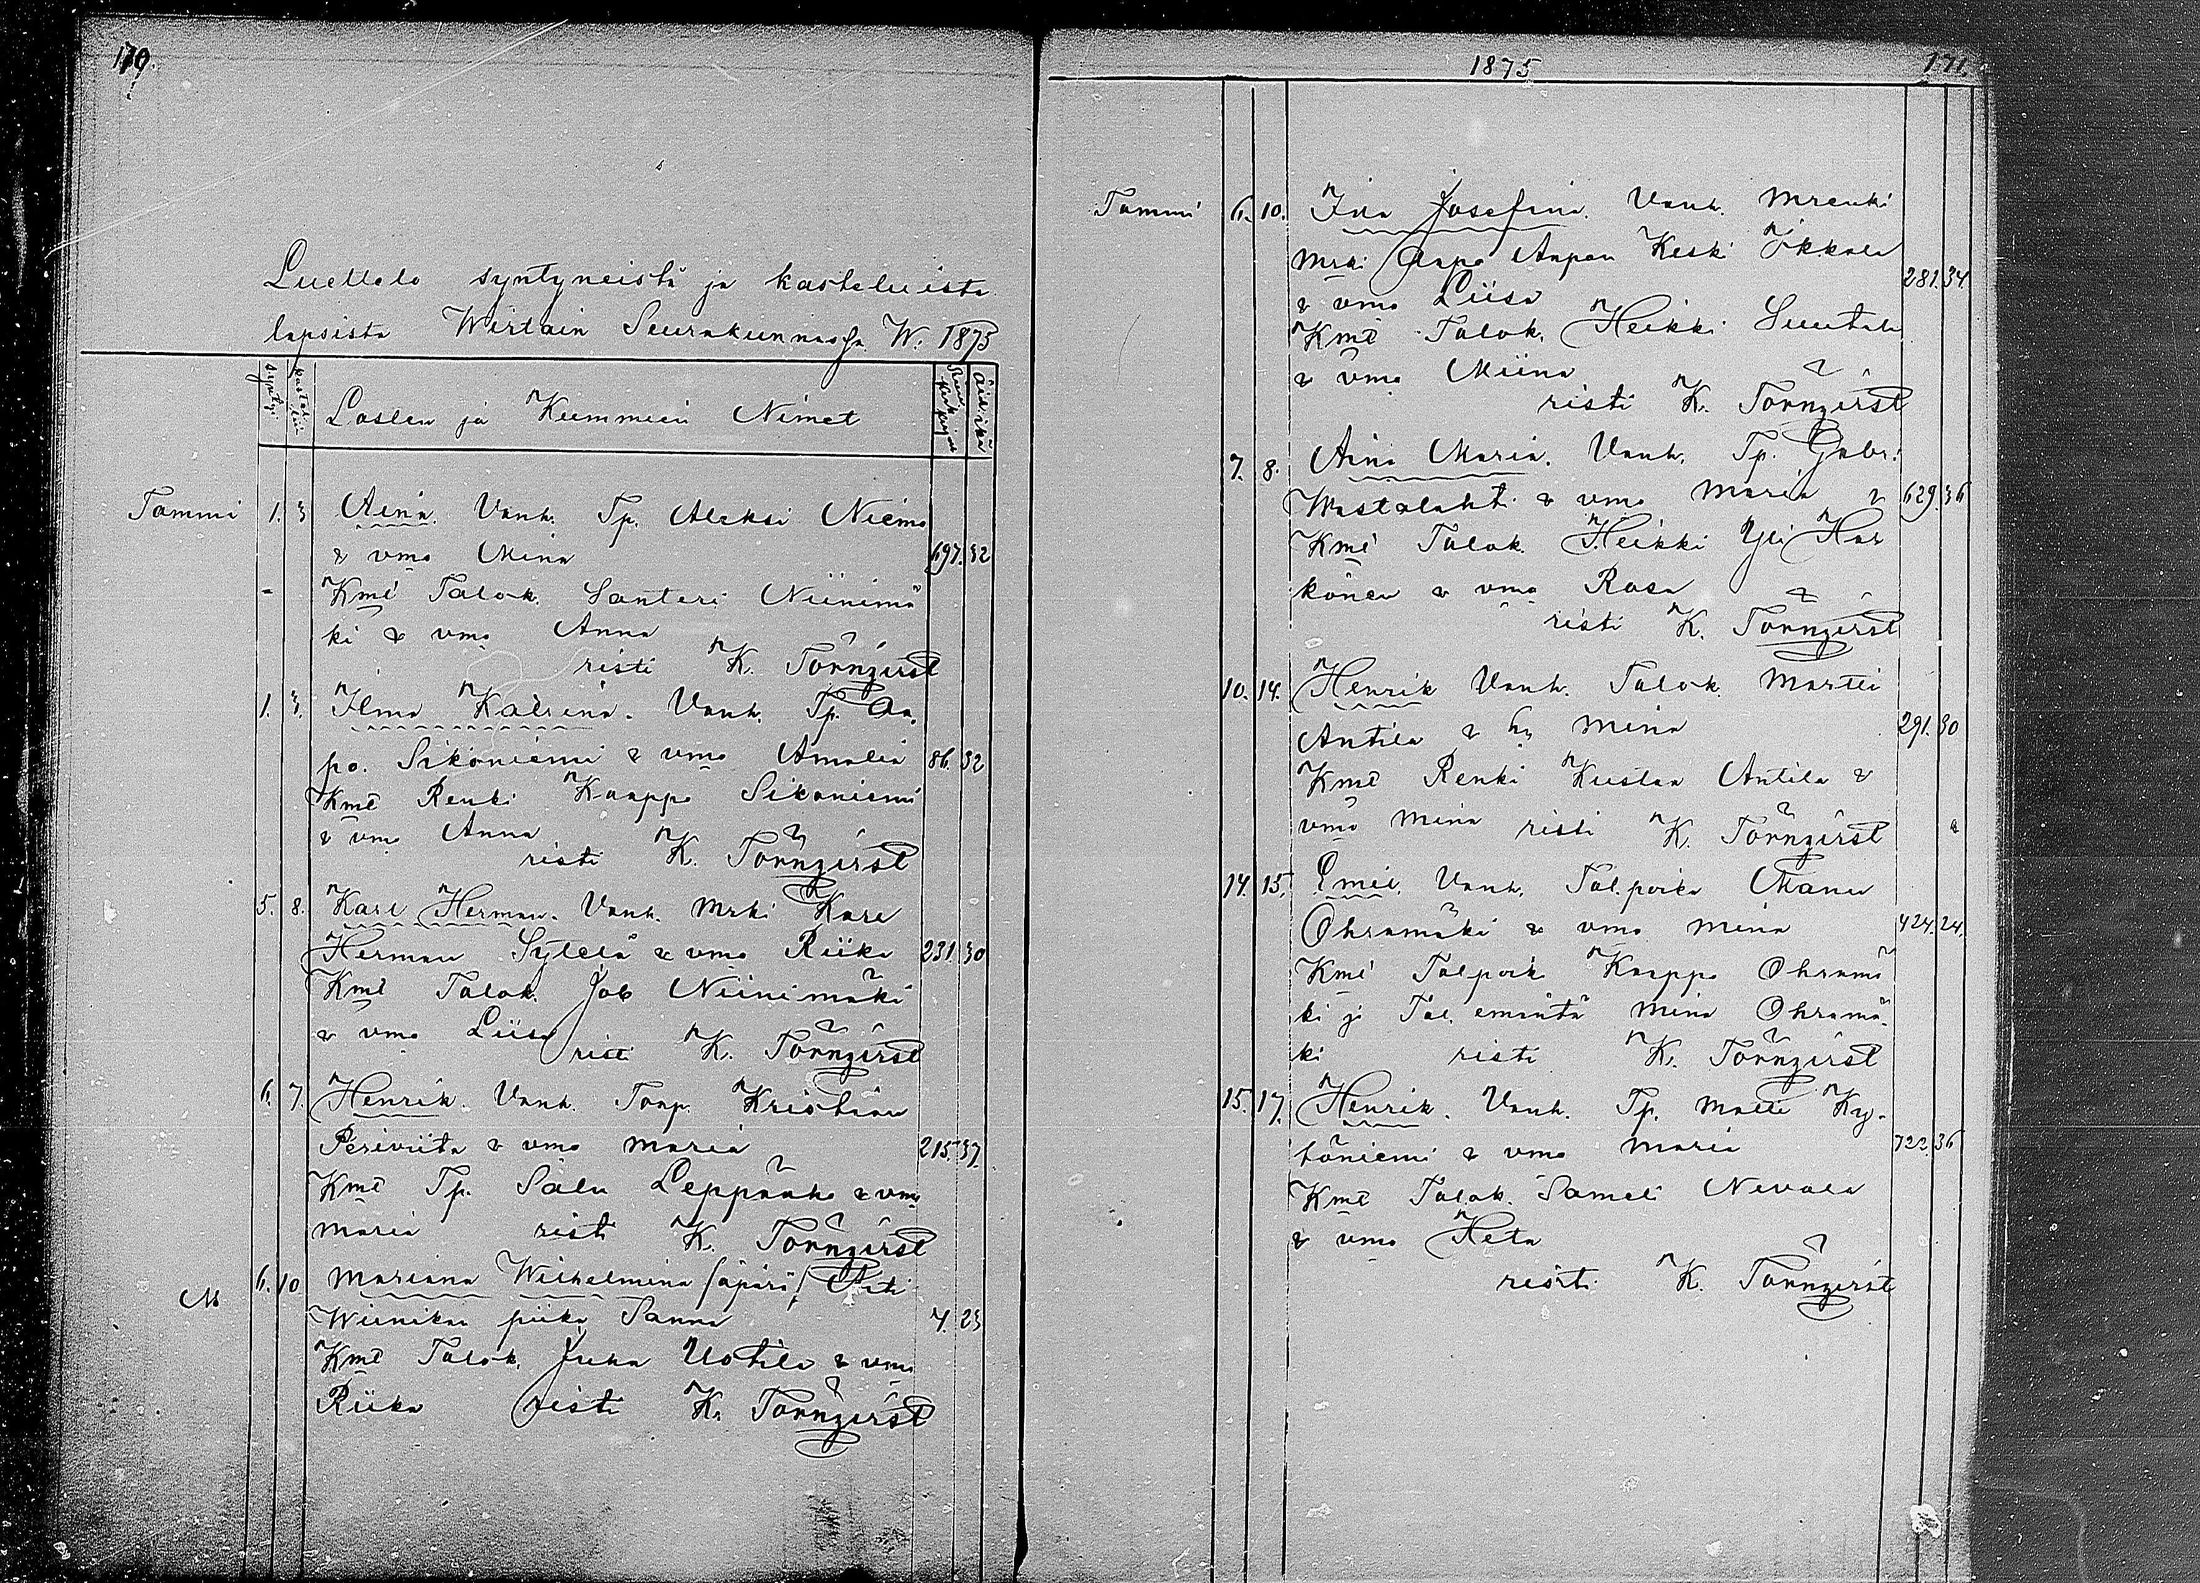 170.
Luettelo syntyneistä ja kastetuista
lapsista Wirtain Seurakunnassa W. 1875
syntyi
kastettiin
Lasten ja Kummien Nimet
Äidin ikä
Tammi 1. 3 Aina. Vanh. Tp. Aleksi Niemi
& vmo Mina 697. 32
Kmt Talok. Santeri Niinimä
ki & vmo Anna
risti K. Törnqvist
1. 3. Ilma Katrina. Vanh. Tp. Aa
po. Sikoniemi & vmo Amalia 86. 32
Kmt Renki Kaappo Sikoniemi
& vmo Anna
risti K. Törnqvist
5. 8. Karl Herman. Vanh. Mrki Karl
Herman Sytelä & vmo Riika 231. 30
Kmt Talok. Job Niinimäki
& vmo Liisa
risti K. Törnqvist
6. 7. Henrik. Vanh. Torp. Kristian
Periviita & vmo Maria 215. 37.
Kmt Tp. Salu Leppäaho & vmo
Maria risti K. Törnqvist
M 6. 10 Mariana Wilhelmina /äpärä/ Äiti
Wiinikan piika Sanna 7. 23
Kmt Talok. Juha Uotila & vmo
Riika risti K. Törnqvist
1875
171.
Tammi 6. 10. Ida Josefina. Vanh.
Mrki Aapo Aapon Keski
& vmo Liisa 281. 34.
Kmt Talok. Heikki
& vmo Miina
risti K. Törnqvist
7. 8. Aina Maria. Vanh. Tp. Gabr.
Wastalahti & vmo Maria & 629. 36
Kmt Talok. Heikki Yli Här
könen & vmo Rosa
risti K. Törnqvist
10. 14. Henrik Vanh. Talok. Martti
Antila & h; Mina 291. 30
Kmt Renki Kustaa Antila &
vmo Mina risti K. Törnqvist
14. 15. Emil. Vanh. Tal.poika Manu
Ohramäki & vmo Mina 424. 24.
Kmt Talpoik Kaappo Ohramä
ki ja Tal. emäntä Mina Ohramä-
ki risti K. Törnqvist
15. 17. Henrik. Vanh. Tp. Matti Ky-
töniemi & vmo Maria 722. 36
Kmt Talok. Sameli Nevala
& vmo Heta
risti K. Törnqvist